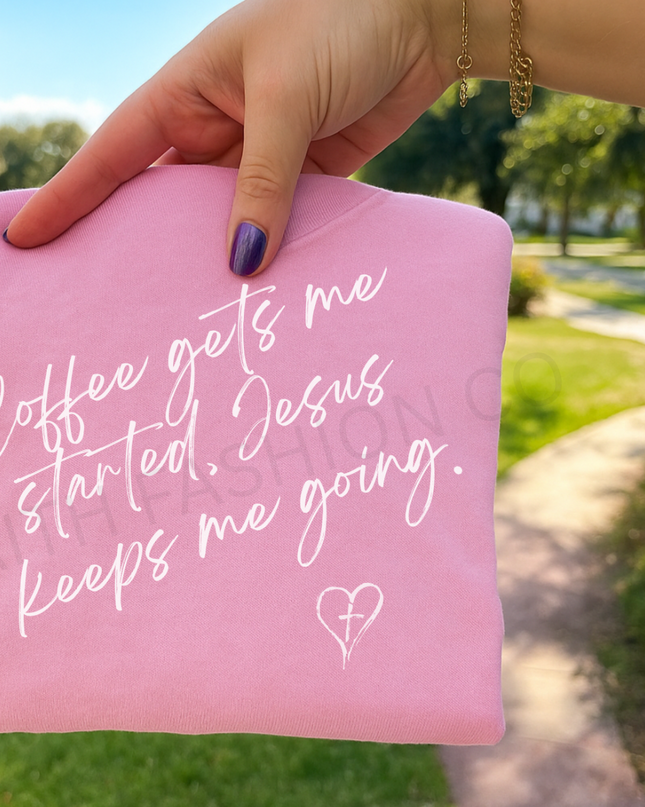 Coffee gets me
started, Jesus
keeps me going.
FASHION CO